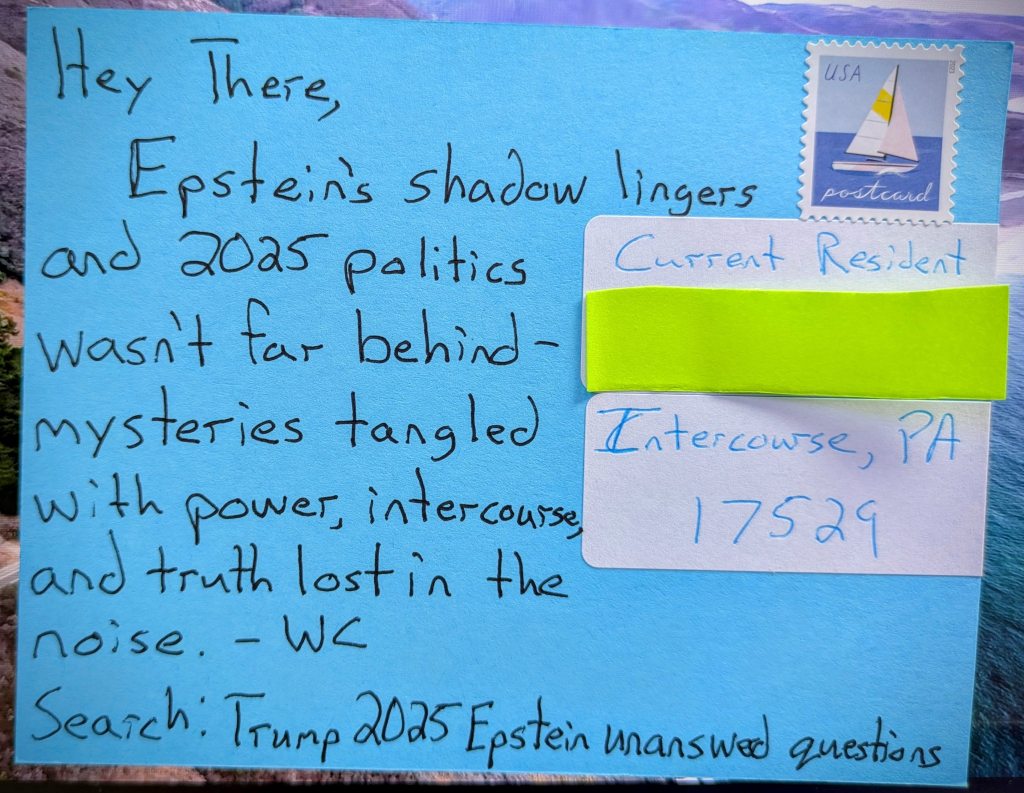 Hey There,
Epstein's shadow lingers
and 2025 politics
wasn't far behind-
mysteries tangled
with power, intercourse,
and truth lost in the
noise. - WC
Search: Trump 2025 Epstein unanswed questions
USA
2023
postcard
Current Resident
Intercourse, PA
17529